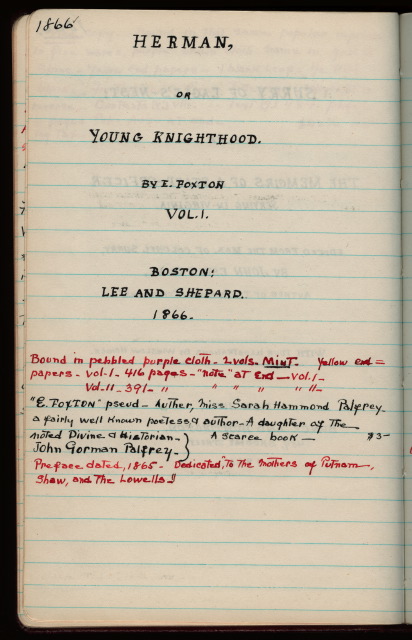 1866
HERMAN,
OR
YOUNG KNIGHTHOOD.
BY E. FOXTON
VOL. I.
BOSTON:
LEE AND SHEPARD.
1866.
Bound in pebbled purple cloth - 2 vols. Mint - Yellow end =
papers - vol-1- 416 pages - "note" at End - vol. 1 -
Vol-11 - 391 - " " " " " 11 -
"E. FOXTON" pseud - Auther, Miss Sarah Hammond Palfrey -
a fairly well known poetess & author - A daughter of the
noted Divine & Historian - A scarce book - $3-
John Gorman Palfrey - }
Preface dated, 1865 - Dedicated, "To the Mothers of Putnam,
Shaw, and The Lowells -"